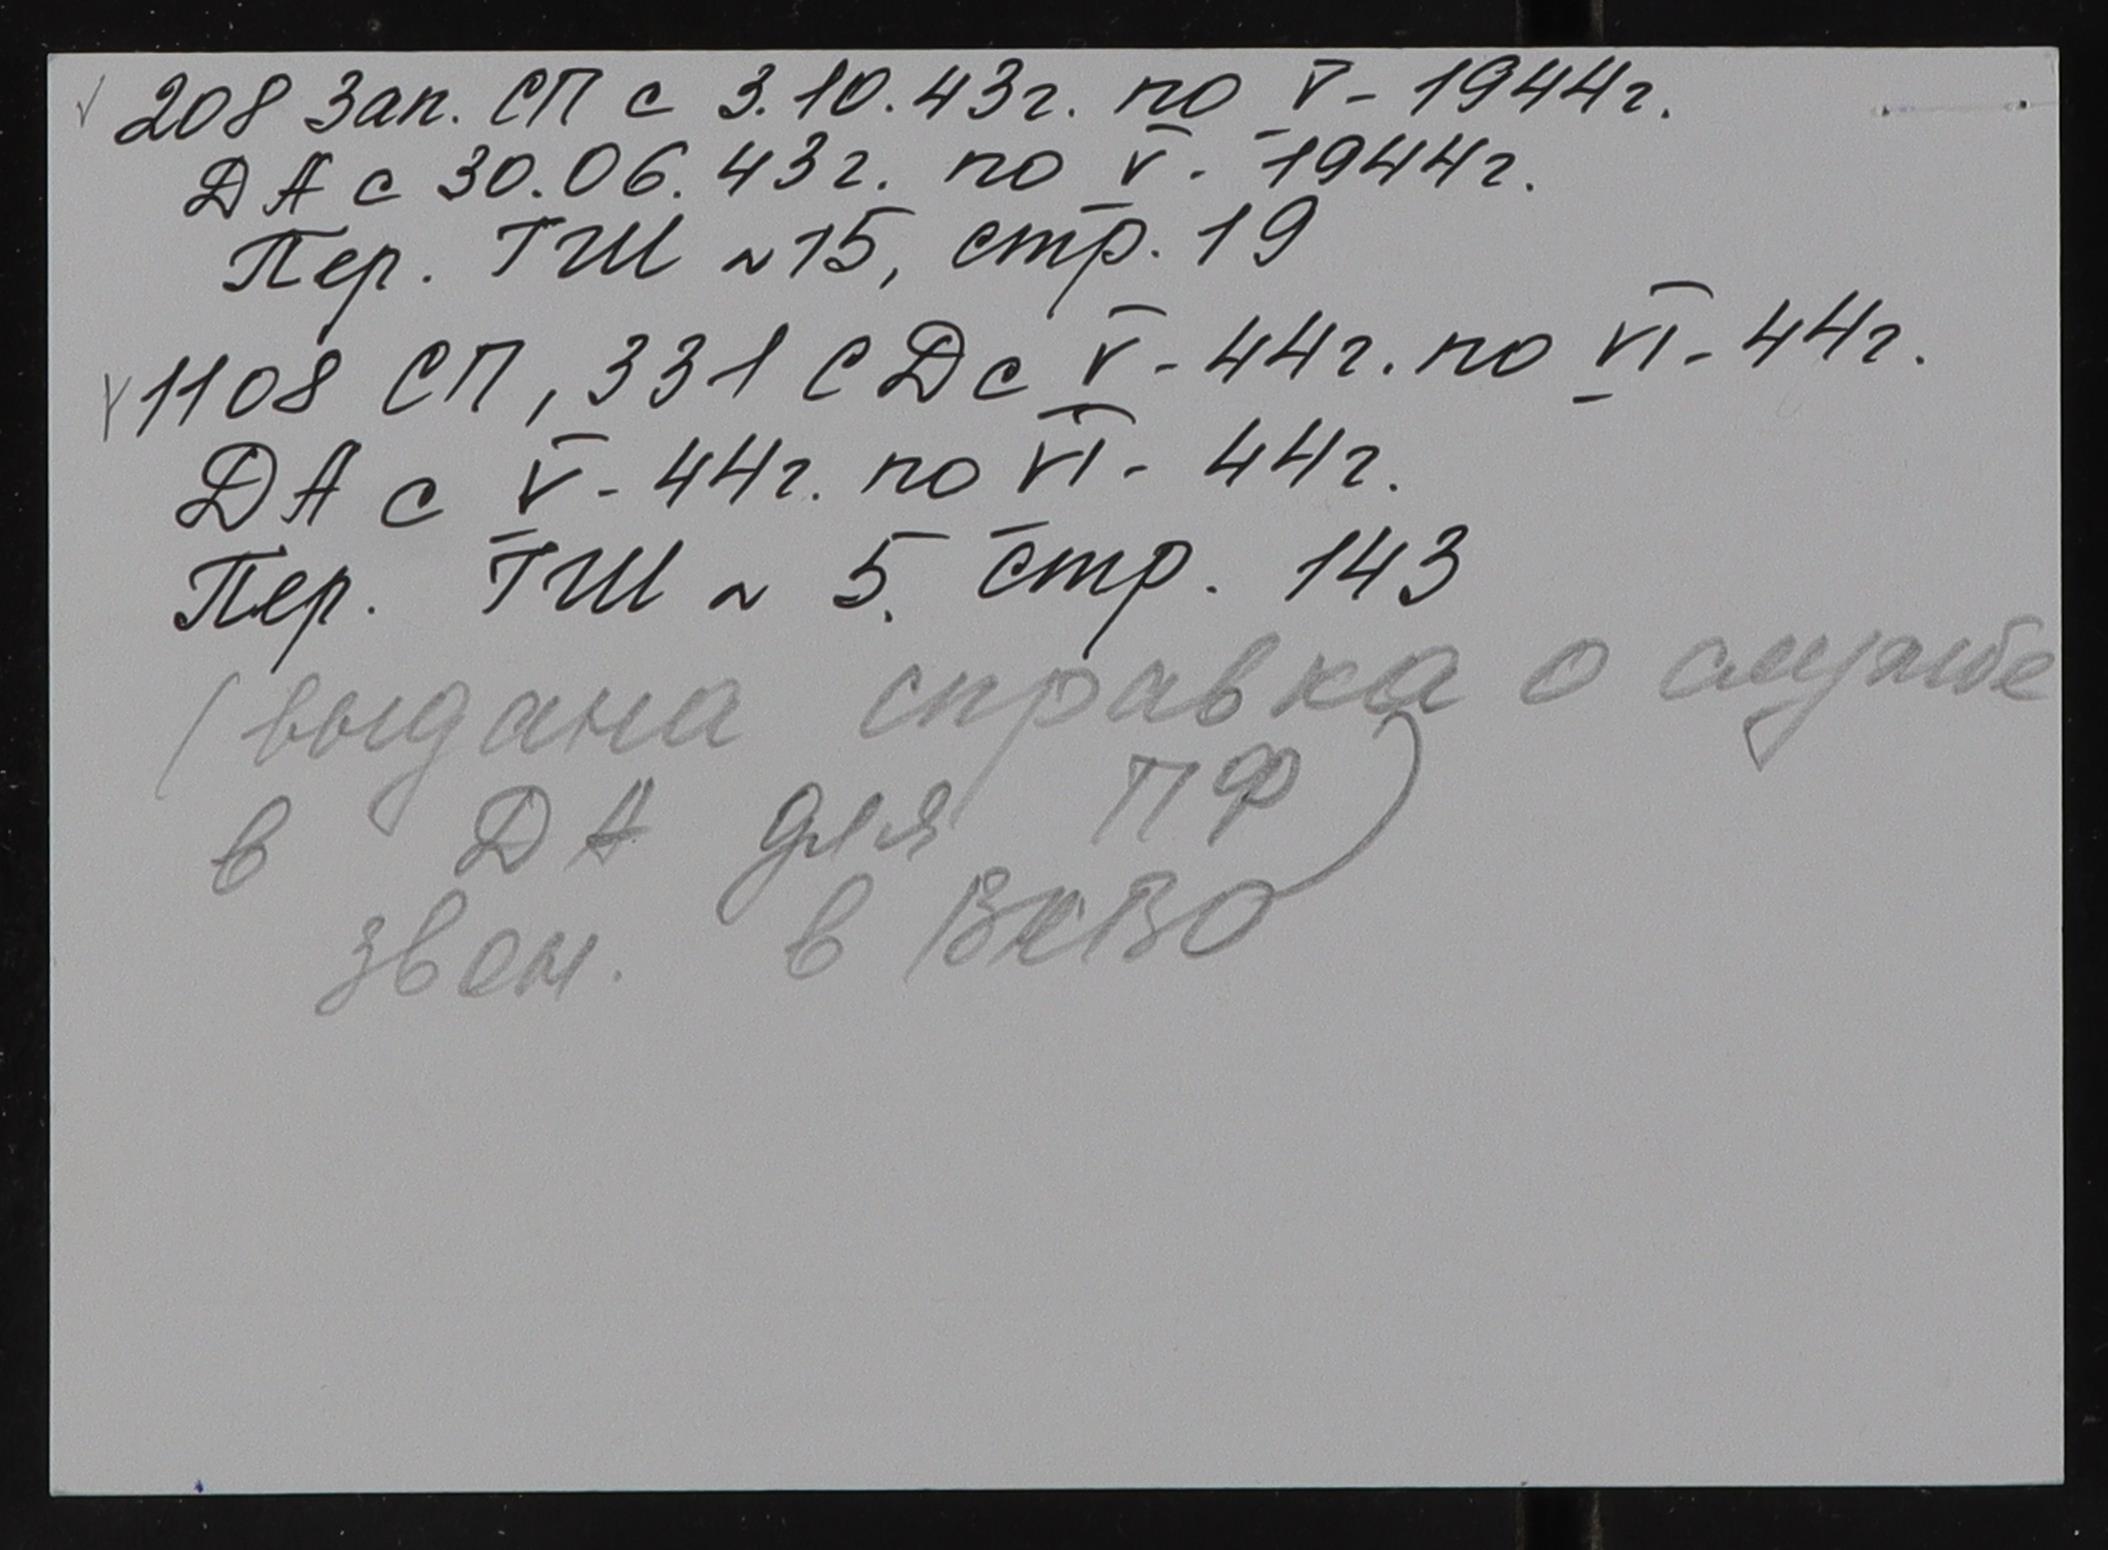 √ 208 Зап. СП с 3.10.43г. по V - 1944г.
ДА с 30.06.43г. по V - 1944г.
Пер. ГШ N 15, стр. 19
√ 1108 СП, 331 СД с V - 44г. по VI - 44г.
ДА с V - 44г. по VI - 44г.
Пер. ГШ N 5. стр. 143
(выдана справка о службе
в ДА для ПФ
звон. в ВКВО)